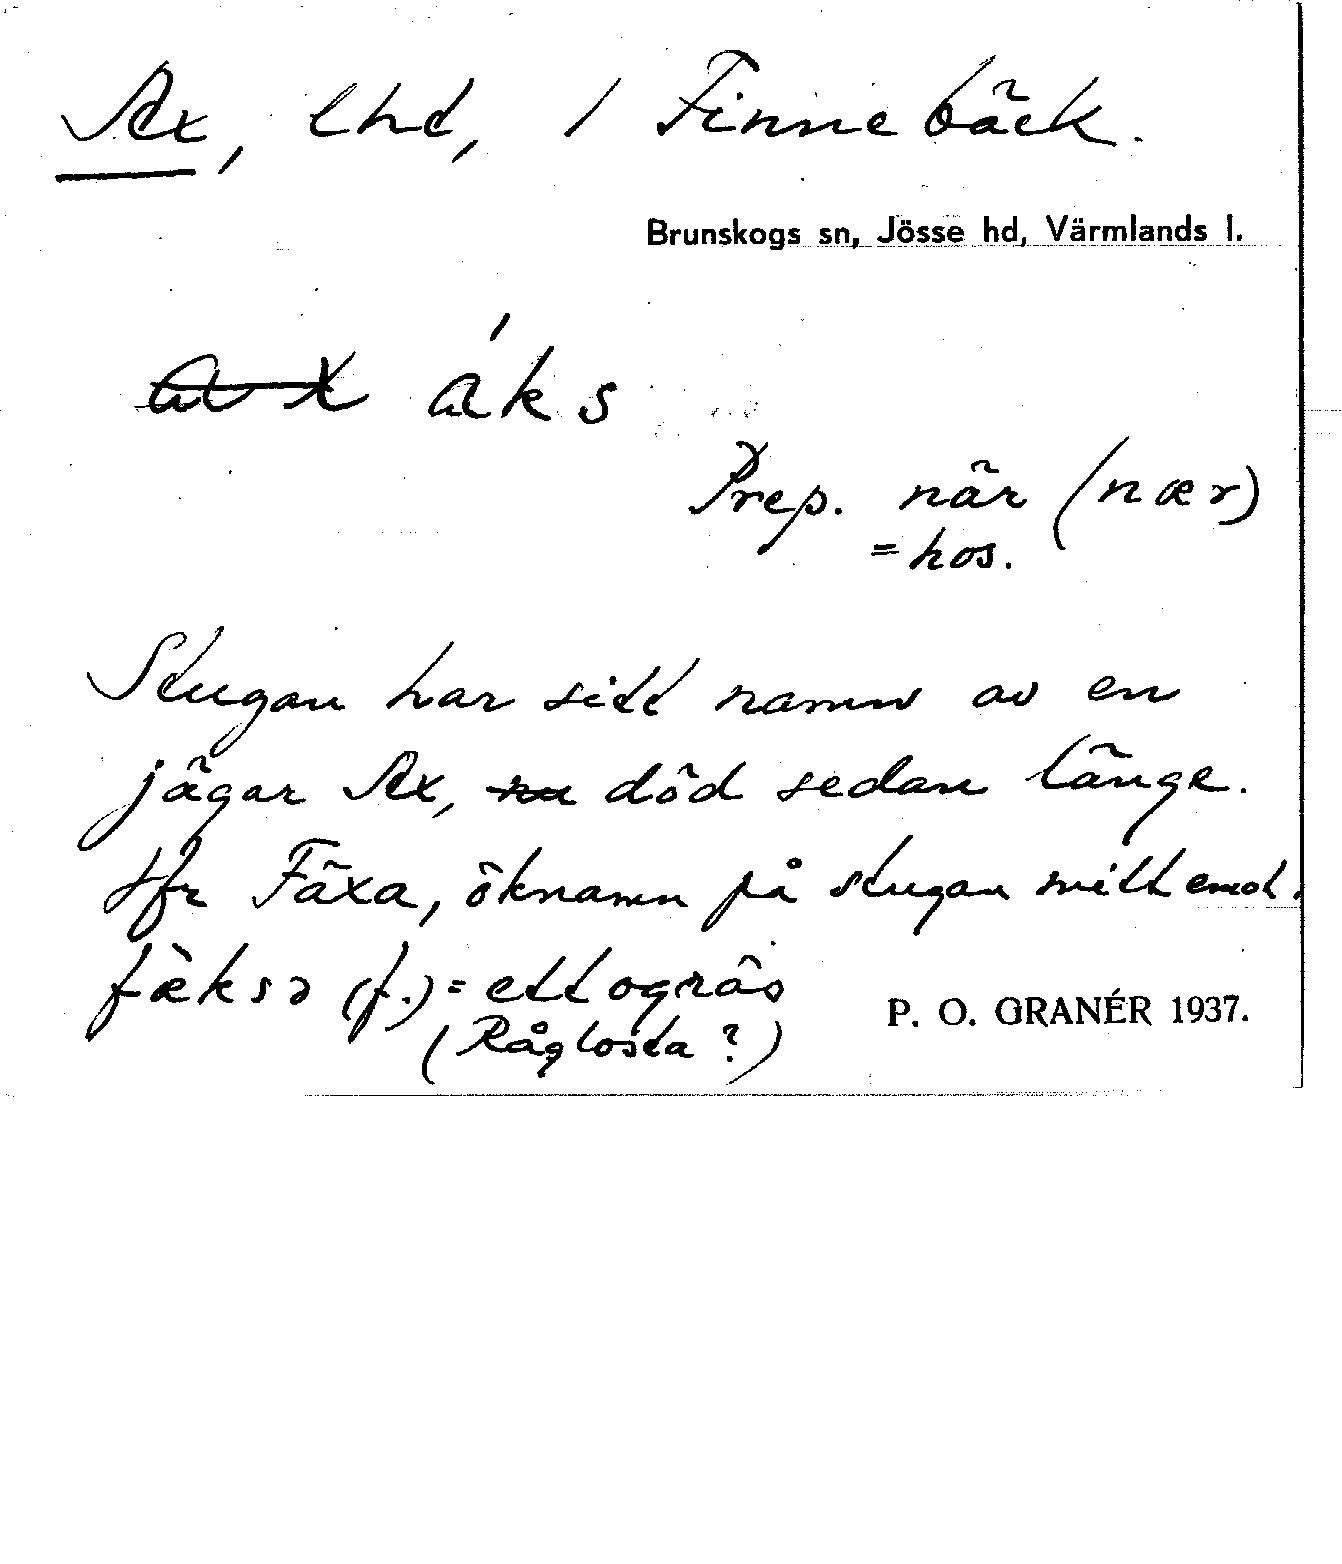 Ax, lhd, / Finnebäck.
Brunskogs sn, Jösse hd, Värmlands l.
áks
Prep. när (nær)
= hos.
Stugan har sitt namn av en
jägar Ax, död sedan länge.
Jfr Fäxa, öknamn på stugan mitt emot.
fæ̀ksə (f.) = ett ogräs
(Råglosta?)
P. O. GRANÉR 1937.